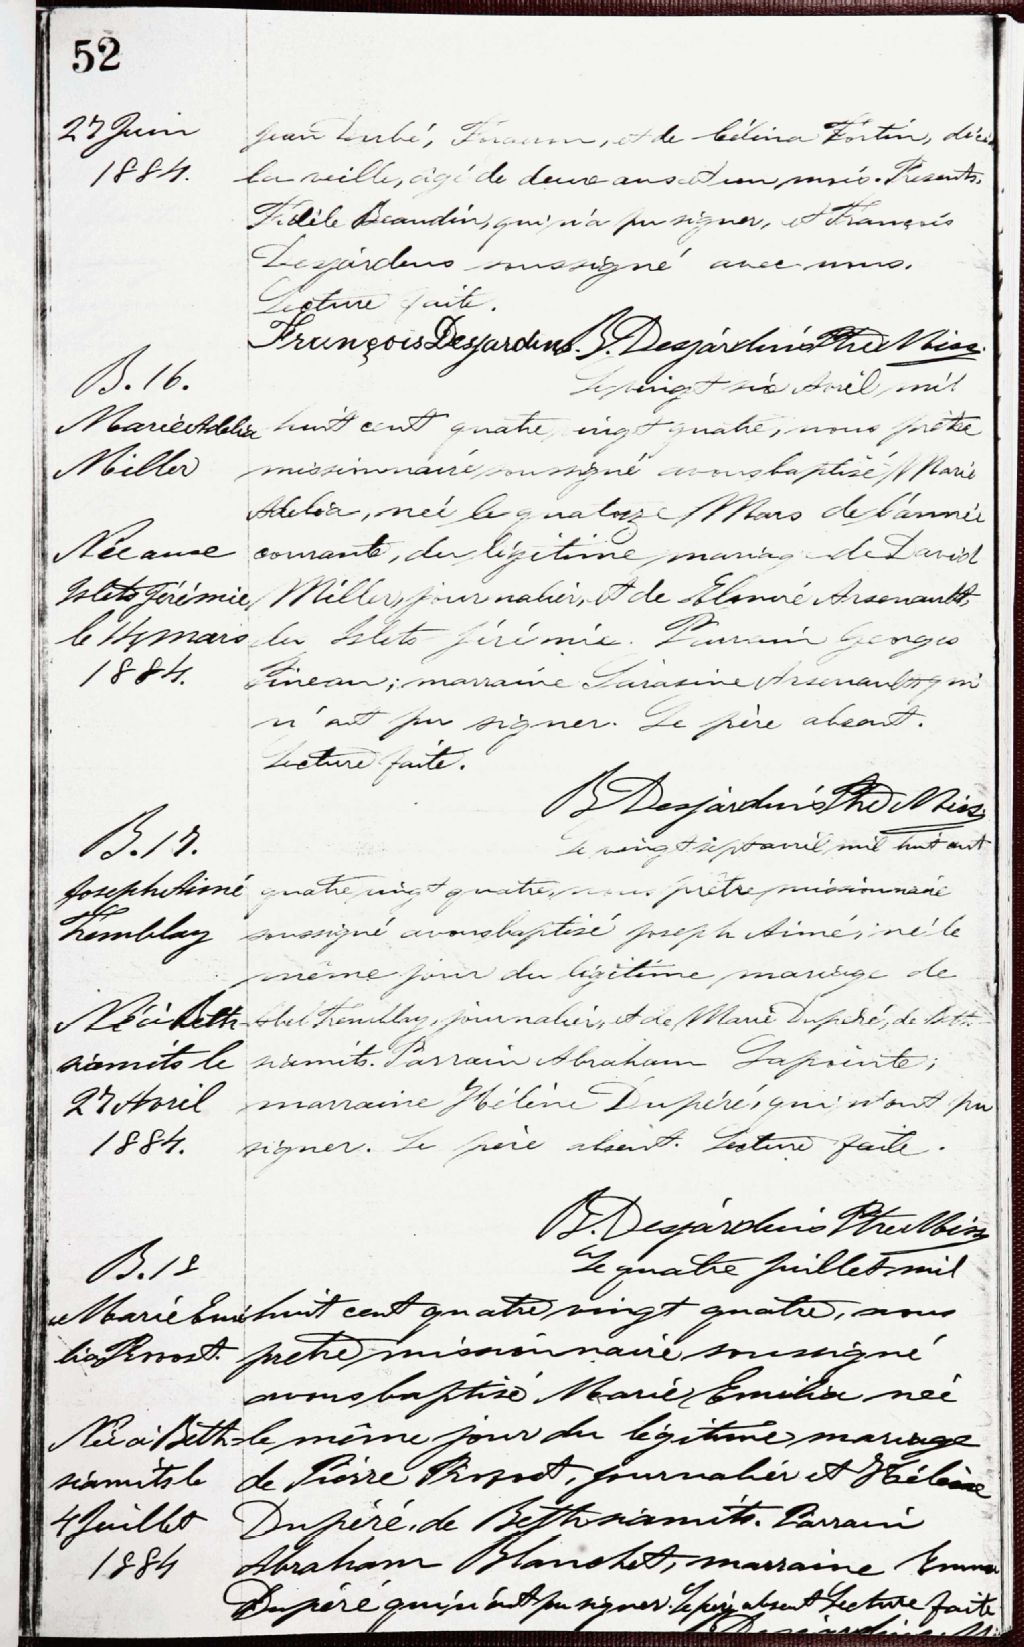 52
27 Juin
1884.
Jean Dubé, Forgeron, et de Célina Fortin, décédé
la veille, âgé de deux ans et un mois. Présents,
Fidèle Beaudin, qui n'a pu signer, et François
Desjardins soussigné avec nous.
Lecture faite.
François Desjardins. B. Desjardins Ptre Miss.
B. 16.
Marie Adelia
Miller
Née aux
Islets Jérémie
le 14 mars
1884.
Le vingt six Avril mil
huit cent quatre vingt quatre, nous prêtre
missionnaire soussigné avons baptisé Marie
Adelia, née le quatorze Mars de l'année
courante, du légitime mariage de David
Miller, journalier, et de Arsenault,
des Islets Jérémie. Parrain Georges
Pineau; marraine Arsenault qui
n'ont pu signer. Le père absent.
Lecture faite.
B. Desjardins Ptre Miss.
B. 17.
Joseph Aimé
Tremblay
Né à Beth-
siamits le
27 Avril
1884.
Le vingt sept avril mil huit cent
quatre vingt quatre, nous prêtre missionnaire
soussigné avons baptisé Joseph Aimé, né le
même jour du légitime mariage de
Abel Tremblay, journalier, et de Marie Dupéré, de Beth-
siamits. Parrain Abraham Lapointe;
marraine Hélène Dupéré, qui n'ont pu
signer. Le père absent. Lecture faite.
B. Desjardins Ptre Miss
B. 18
Marie Emi
lia Provost.
Née à Beth-
siamits le
4 Juillet
1884
Le quatre juillet mil
huit cent quatre vingt quatre, nous
prêtre missionnaire soussigné
avons baptisé Marie Emilia née
le même jour du légitime mariage
de Pierre Provost, journalier et Hélène
Dupéré, de Bethsiamits. Parrain
Abraham Blanchet, marraine Emma
Dupéré qui n'ont pu signer. Le père absent Lecture faite
B. Desjardins